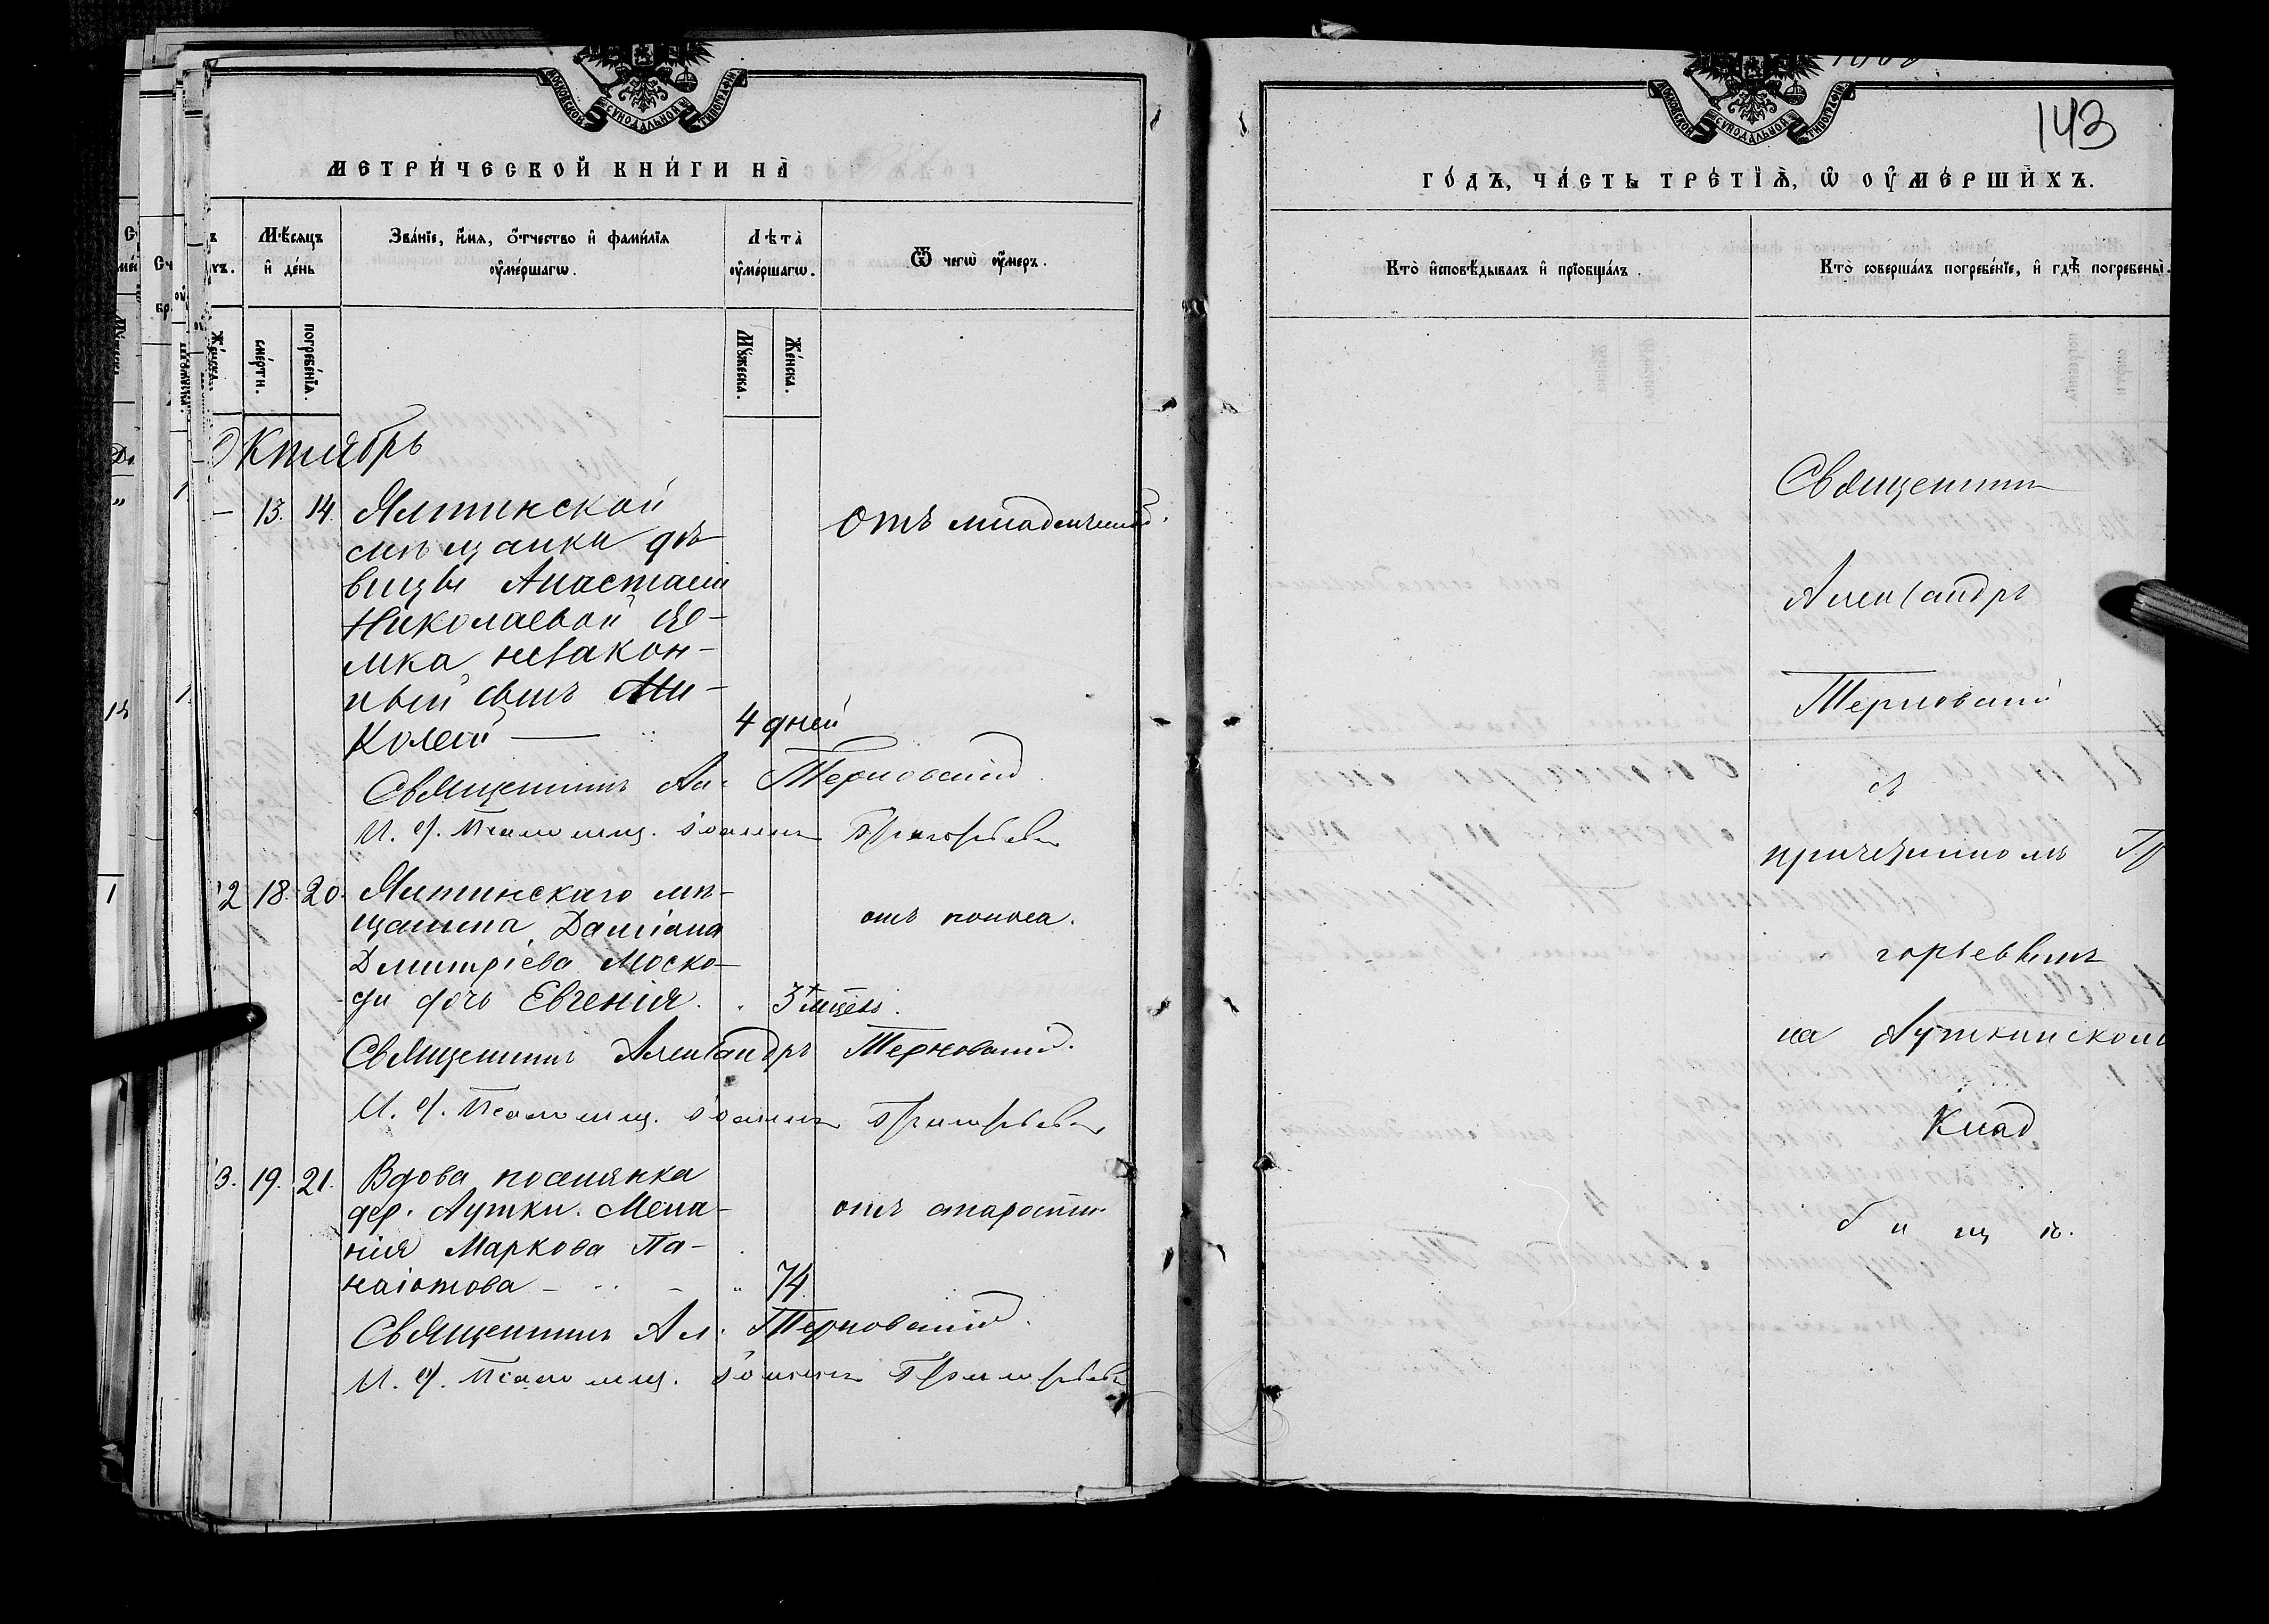 МОСКОВСКОЙ СУНОДАЛЬНОЙ ТИПОГРАФІИ
МЕТРИ́ЧЕСКОЙ КНИ́ГИ НА̀
Мѣ́сяцъ и҆ де́нь
Зва́нїе, и҆́мя, ѻ҆́тчество и҆ фами́лїя ᲂу҆ме́ршагѡ.
Лѣ́та ᲂу҆ме́ршагѡ.
Ѿ чегѡ̀ ᲂу҆́меръ.
Же́нска.
сме́рти.
погребе́нїѧ.
Мꙋ́жеска.
Же́нска.
Октябрь
13. 14. Ялтинской
мѣщанки дѣ-
вицы Анастасіи
Николаевой
незакон-
ный сынъ Ни-
колай — 4 дней
отъ младенческой.
Священникъ Ал. Терновскій
И. д. Псаломщ. Іоаннъ Григорьевъ
2 18. 20. Ялтинскаго мѣ-
щанина Даміана
Дмитріева Моско-
ди дочь Евгенія. 3 мѣсяц.
отъ поноса.
Священникъ Александръ Терновскій.
И. д. Псаломщ. Іоаннъ Григорьевъ
3. 19. 21. Вдова поселянка
дер. Аутки. Мела-
нія Маркова Па-
наіотова — 74.
отъ старости
Священникъ Ал. Терновскій.
И. д. Псаломщ. Іоаннъ Григорьевъ
МОСКОВСКОЙ СУНОДАЛЬНОЙ ТИПОГРАФІИ
143
ГО́ДЪ, ЧА́СТЬ ТРЕ́ТЇѦ, Ѡ҆ ОУ҆МЕ́РШИХЪ.
Кто̀ и҆сповѣ́дывалъ и҆ прїѡбща́лъ.
Кто̀ соверша́лъ погребе́нїе, и҆ гдѣ̀ погребены̀.
Священникъ
Александръ
Терновскій
съ
причетникомъ Гр
горьевымъ
на Ауткинскомъ
Клад
бищѣ.